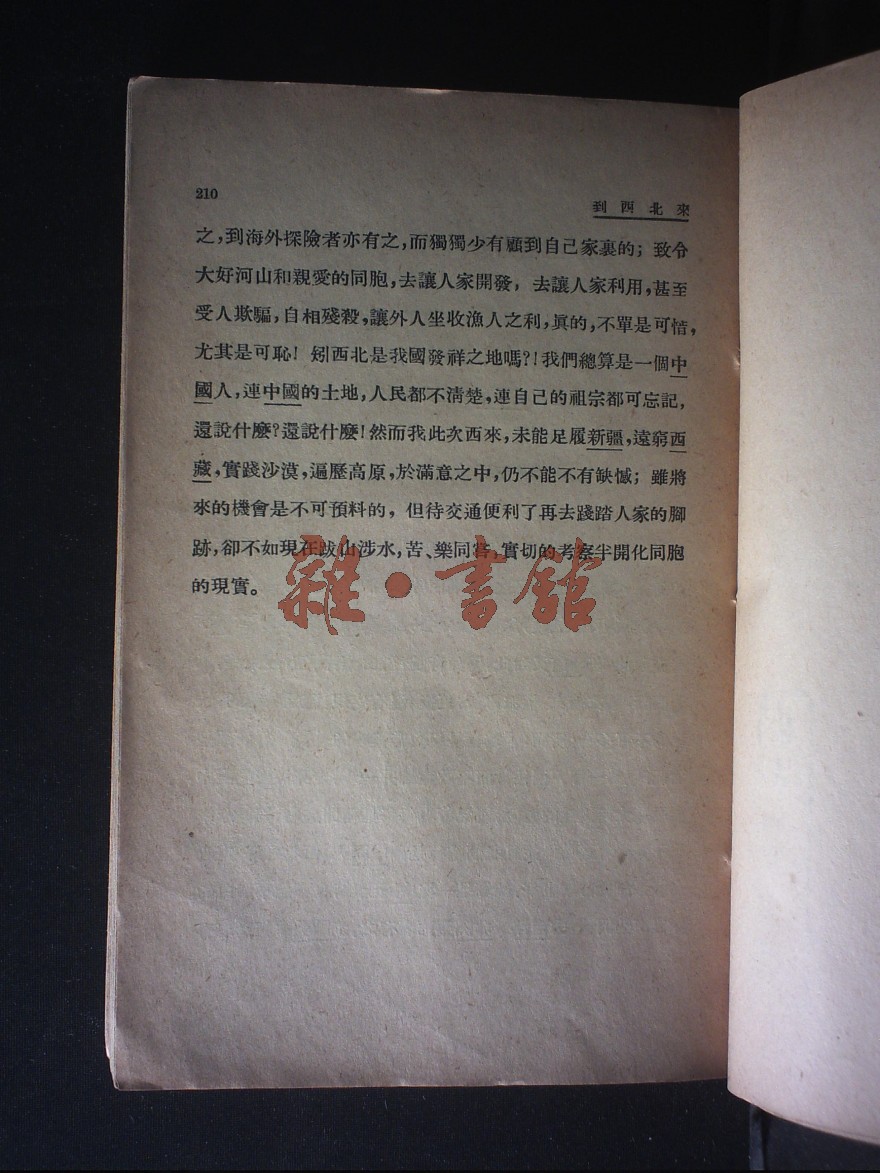 210
到西北來
之，到海外探險者亦有之，而獨獨少有顧到自己家裏的；致令
大好河山和親愛的同胞，去讓人家開發，去讓人家利用，甚至
受人欺騙，自相殘殺，讓外人坐收漁人之利，眞的，不單是可惜，
尤其是可恥！矧西北是我國發祥之地嗎？！我們總算是一個中
國人，連中國的土地，人民都不淸楚，連自己的祖宗都可忘記，
還說什麼？還說什麼！然而我此次西來，未能足履新疆，遠窮西
藏，實踐沙漠，遍歷高原，於滿意之中，仍不能不有缺憾；雖將
來的機會是不可預料的，但待交通便利了再去踐踏人家的腳
跡，卻不如現在跋山涉水，苦、樂同嘗，實切的考察半開化同胞
的現實。
雜·書館